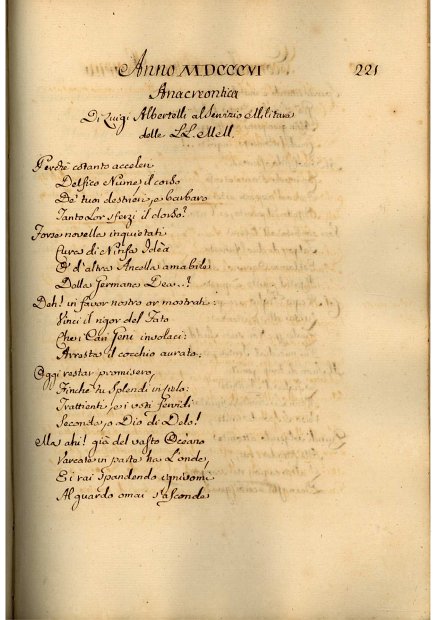 Anno MDCCCVI
221
Anacreontica
Di Luigi Albertolli al Servizio Militare
delle LL. MM.
Perchè cotanto acceleri
Delfico Nume, il corso
De' tuoi destrieri, e barbaro
Tanto Lor sferzi il dorso?
Forse novelle inquietati
Cura di Ninfa Idèa
O d'altra Ancella amabile
Della Germana Dea..?
Deh! in favor nostro or mostrati:
Vinci il rigor del Fato
Che i Cari Geni involaci:
Arresta il cocchio aurato:
Oggi restar promisero,
Finchè tu Splendi in
Trattienti, e i voti fervidi
Seconda, o Dio di Delo!
Ma ahi! già del vasto Océano
Varcate in parte ha L'onde,
E i rai spandendo ignivomi
Al guardo omai s'asconde